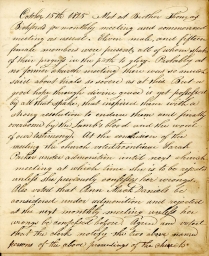 October 15th 1825 Met at Brother
for monthly meeting and commenced
meeting as usual. Eleven male and fifteen
female members were present, all of whom spoke
of their progress in the path to glory. Probably at
no former church meeting there was so much
said about trials as now is at this. But a
good hope through divine grace is yet possessed
by all that spake, that inspired them with a
strong resolution to endure them and finally
overcome by the Lamb's blood and the word
of our testimony. At the conclusion of the
meeting the church voted to continue Sarah
under admonition until next church
meeting at which time she is to be rejected
unless she previously confesses her wrongs.
Also voted that Ann Maria Daniels be
considered under admonition and rejected
at the next monthly meeting unless her
wrongs be confessed before. Agreed and voted
that the clerk notify the two above named
persons of the above proceedings of the church